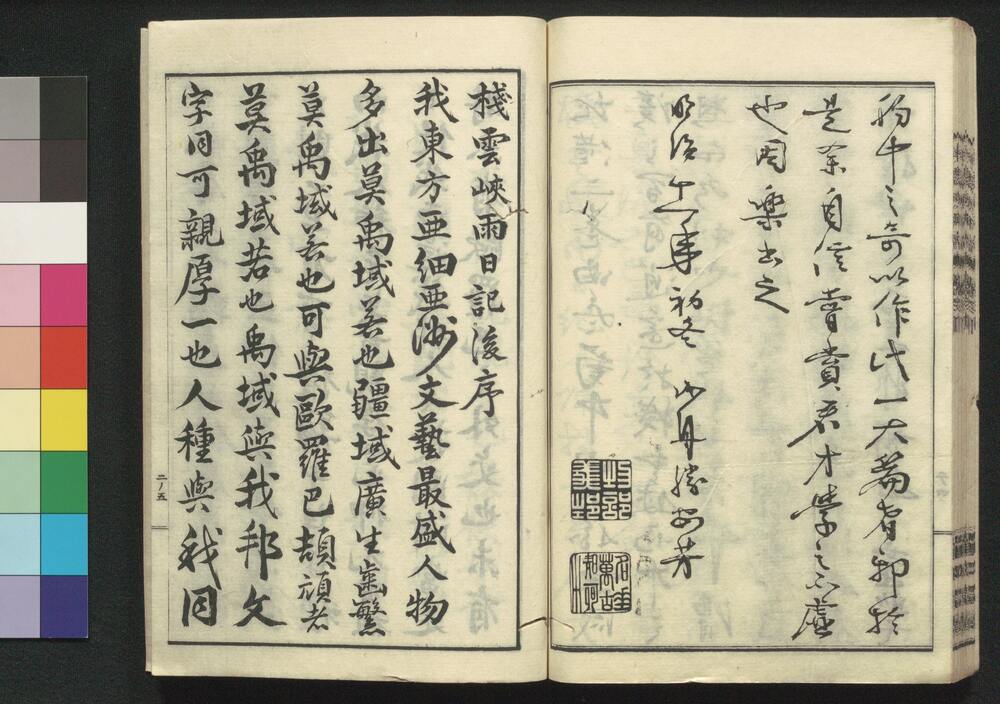 胸中之奇以作此一大篇者邪於
是余自信嘗賞君才學之不虛
也因樂書之
明治十一年初冬
棧雲峽雨日記後序
我東方亜細亜洲文藝最盛人物
多出莫禹域若也疆域廣生齒繁
莫禹域若也可與歐羅巴頡頏者
莫禹域若也禹域與我邦文
字同可親厚一也人種與我同
二ノ五